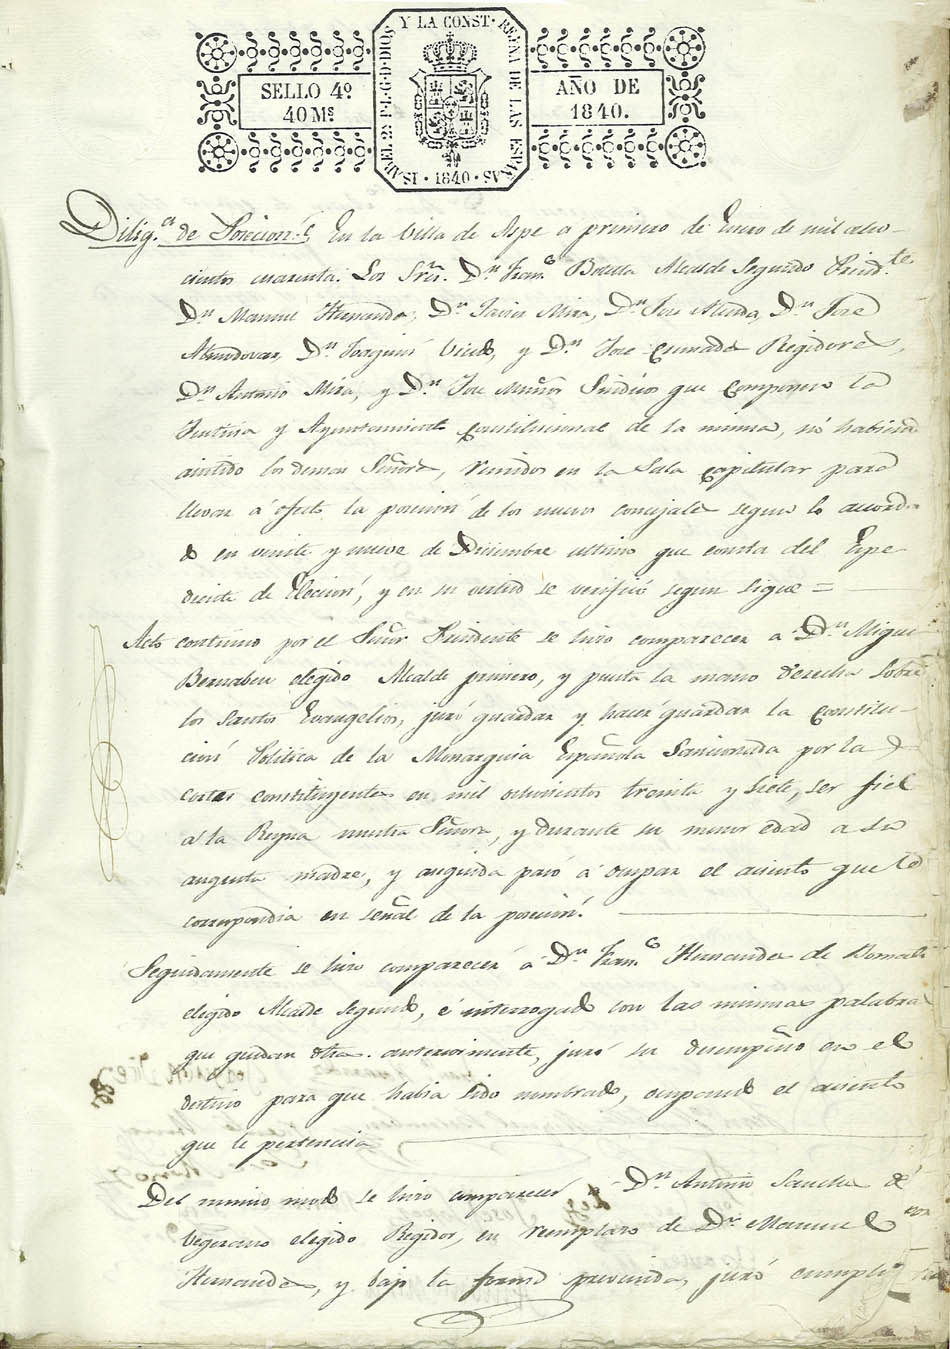 ISABEL 2ª P. L. G. D. DIOS Y LA CONST. REINA DE LAS ESPAÑAS
SELLO 4º
40 Ms
AÑO DE
1840.
· 1840 ·
Diligª de Posecion. En la Villa de Aspe a primero de Enero de mil ocho-
cientos cuarenta. Los Sres. Dn Franco Botella Alcalde Segundo Presidte
Dn Manuel Hernandez, Dn Javier Mira, Dn Jose Dn Jose
Almodovar, Dn Joaquin y Dn Jose Regidores,
Dn Antonio Mira, y Dn Jose Muñoz Sindicos que componen la
Justicia y Ayuntamiento Constitucional de la misma, no habiendo
asistido los demas Señores, reunidos en la Sala capitular para
llevar á efecto la posecion de los nuevos concejales segun lo acorda-
do en veinte y nueve de Diciembre ultimo que consta del Espe-
diente de Eleccion, y en su virtud se verificó segun sigue =
Acto continuo por el Señor Presidente se hizo comparecer a Dn Miguel
Bernabeu elegido Alcalde primero, y puesta la mano derecha sobre
los santos Evangelios, juró guardar y hacer guardar la Constitu-
ción Politica de la Monarquia Española Sancionada por las
cortes constituyentes en mil ochocientos treinta y siete, ser fiel
á la Reyna nuestra Señora, y durante su menor edad a su
augusta madre, y seguida pasó á ocupar el asiento que le
correspondia en señal de la posecion.
Seguidamente se hizo comparecer a Dn Franco Hernandez de
elegido Alcalde segundo, é interrogado con las mismas palabras
que quedan anteriormente, juró su desempeño en el
destino para que habia sido nombrado, ocupando el asiento
que le pertenecia
Del mismo modo se hizo comparecer a Dn Antonio Sanchez de
elegido Regidor, en reemplazo de Dn Manuel
Hernandez, y bajo la forma prevenida, juró cumplir